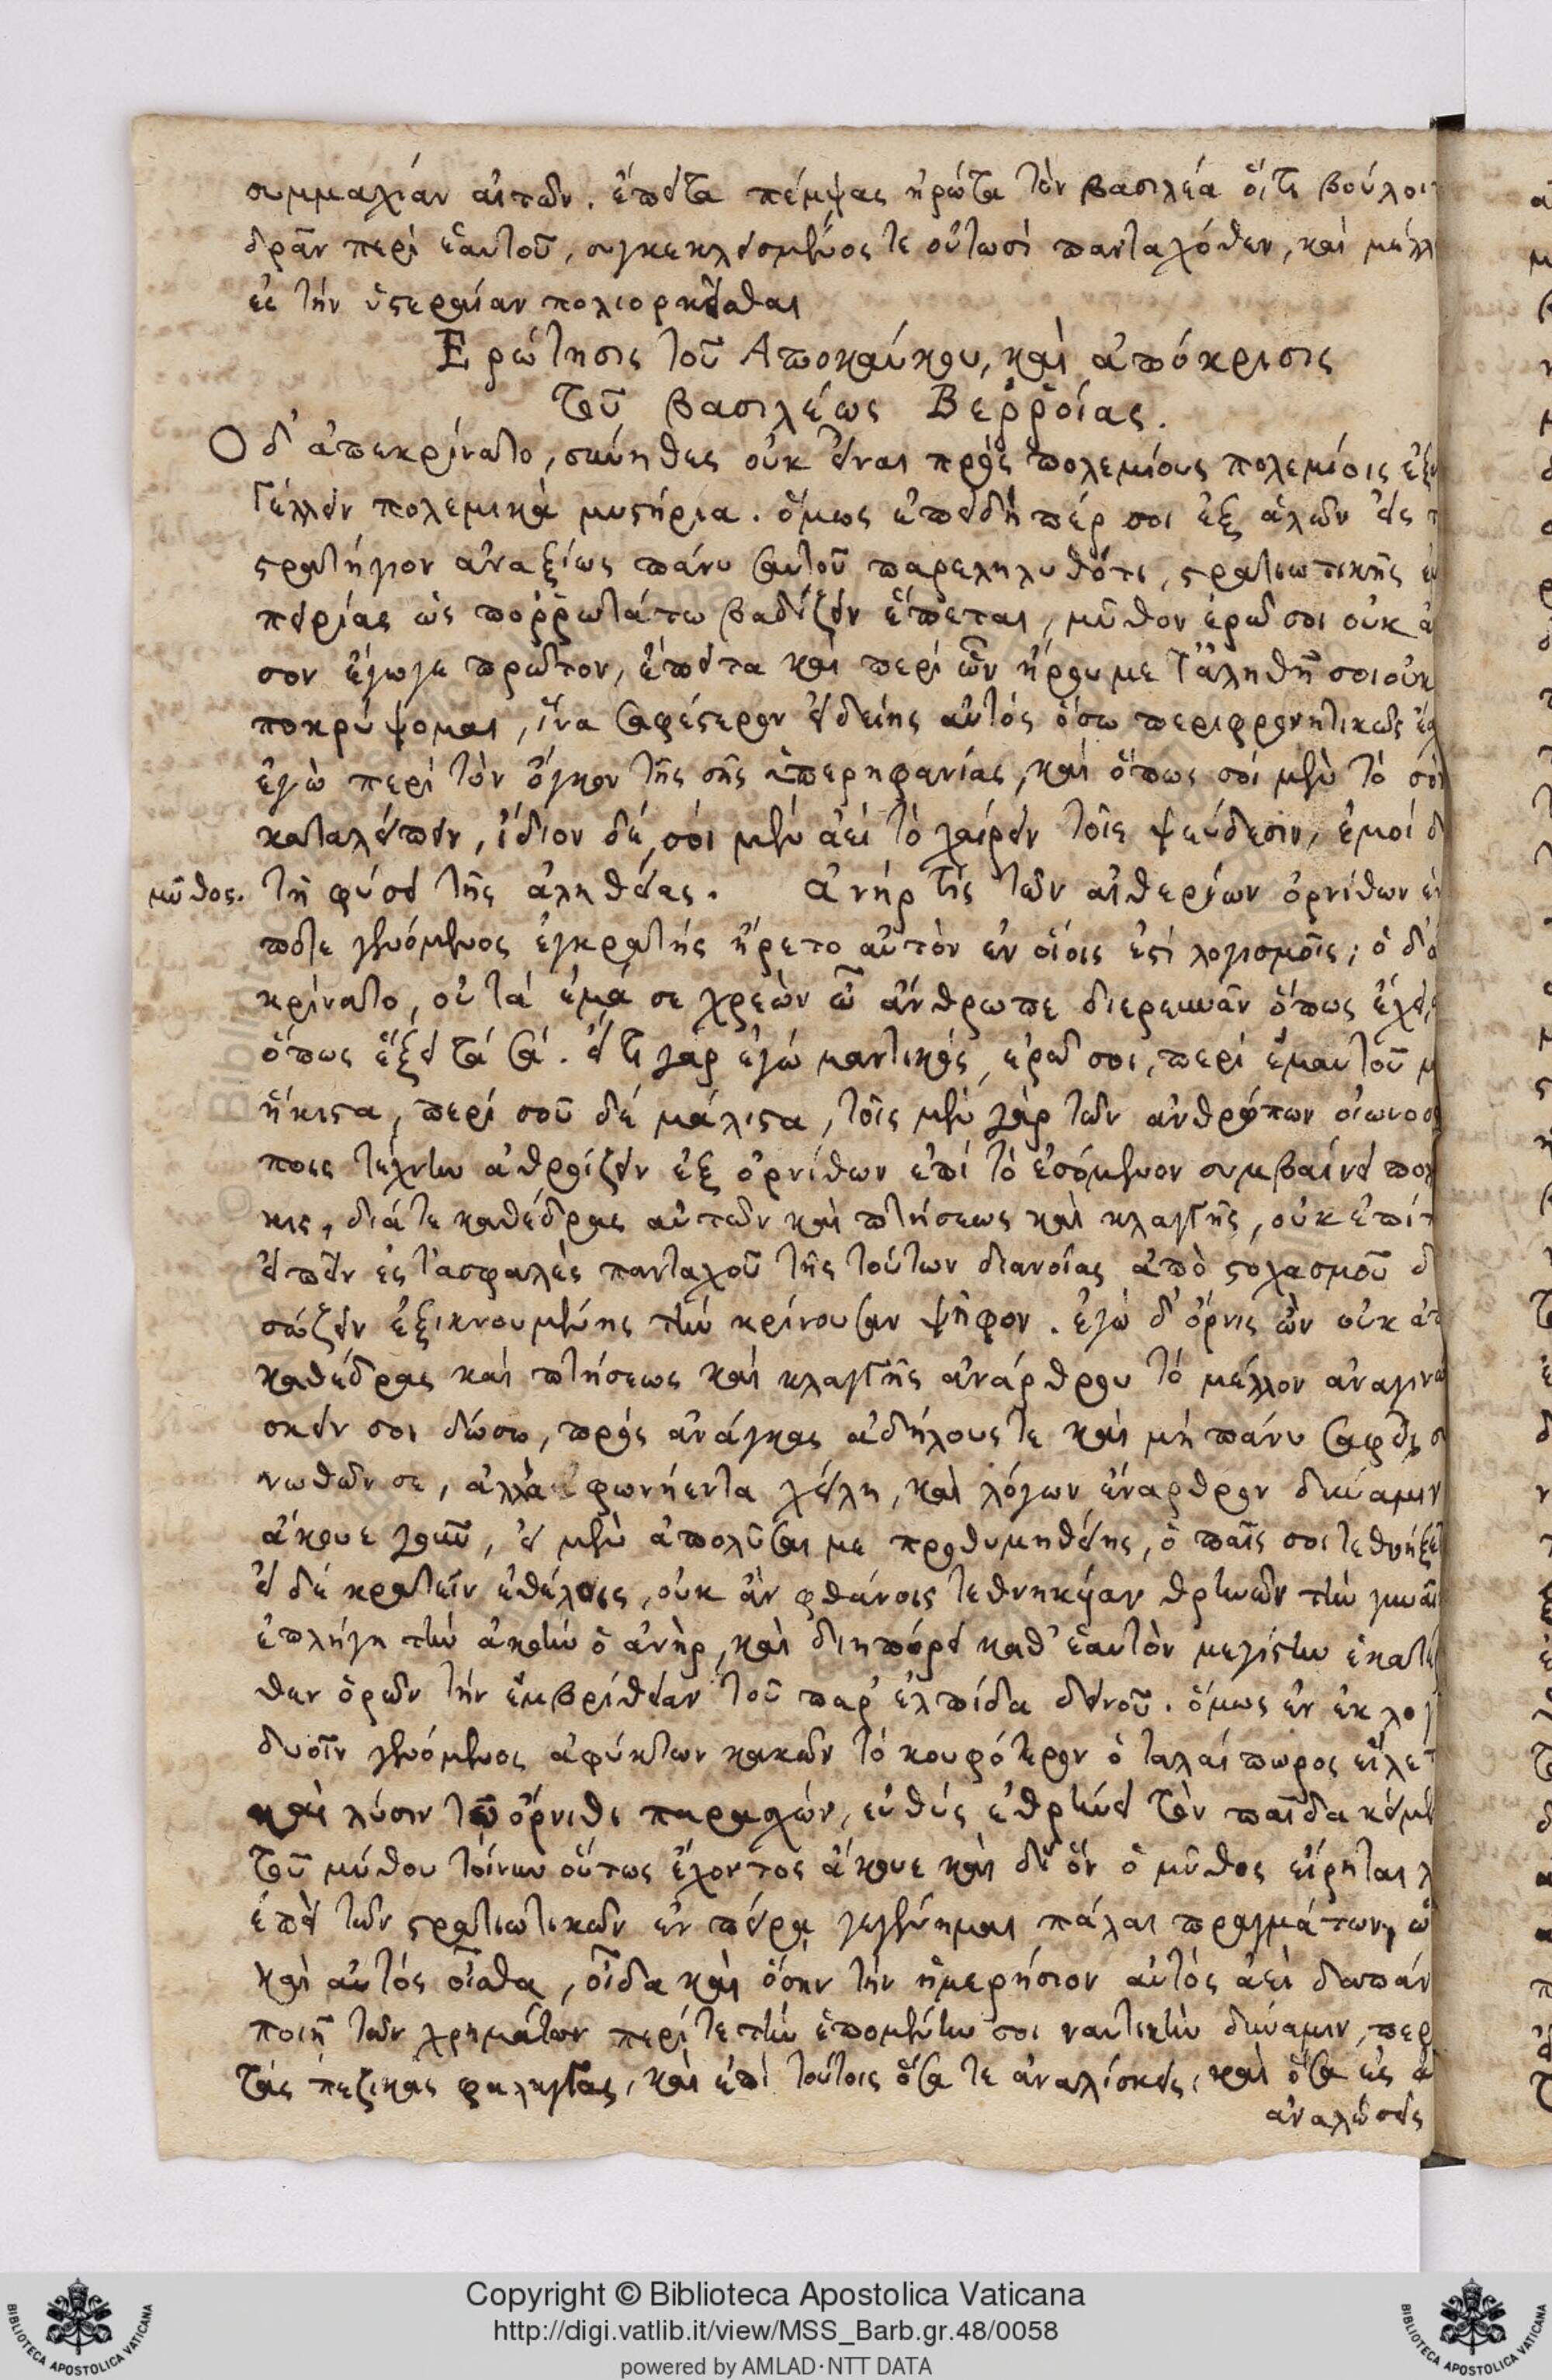 συμμαχίαν αἰτῶν. ἔπειτα πέμψας ἠρώτα τὸν βασιλέα ὅ,τι βούλοι
δρᾶν περὶ ἑαυτοῦ, συγκεκλεισμένος τε οὑτωσὶ πανταχόθεν, καὶ μέλλ
ἐς τὴν ὑστεραίαν πολιορκεῖσθαι
Ερώτησις τοῦ Αποκαύκου, καὶ ἀπόκρισις
τοῦ βασιλέως Βεῤῥοίας.
Ο δ' ἀπεκρίνατο, σύνηθες οὐκ εἶναι πρὸς πολεμίους πολεμίοις ἐξ
γέλλειν πολεμικὰ μυστήρια. ὅμως ἐπειδήπέρ σοι ἐξ ἁλῶν εἰς
στρατήγιον ἀναξίως πάνυ σαυτοῦ παρεληλυθότι, στρατιωτικῆς ἐμ
πειρίας ὡς ποῤῥωτάτω βαδίζειν ἕπεται, μῦθον ἐρῶ σοι οὐκ ἀ
σον ἔγωγε πρῶτον, ἔπειτα καὶ περὶ ὧν ἤρου με τἀληθῆ σοι οὐκ
ποκρύψομαι, ἵνα σαφέστερον εἰδείης αὐτός ὅσω περιφρονητικῶς ἔχ
ἐγὼ περὶ τὸν ὄγκον τῆς σῆς ὑπερηφανίας, καὶ ὅπως σοί μὲν τὸ σὸν
καταλείπειν, ἴδιον δέ, σόι μὲν ἀεὶ τὸ χαίρειν τοῖς ψεύδεσιν, ἐμοί δ
μῦθος. τῆ φύσει τῆς ἀληθείας. ἀνήρ τίς τῶν αἰθερίων ὀρνίθων ἑ
ποτε γενόμενος ἐγκρατής ἤρετο αὐτὸν ἐν οἵοις ἐστὶ λογισμοῖς; ὁ δ' ἀ
κρίνατο, οὐ τά ἐμά σε χρεὼν ὦ ἄνθρωπε διερευνᾶν ὅπως ἔχει,
ὅπως ἕξει τά σά. εἴ τι γὰρ ἐγώ μαντικός, ἐρῶ σοι, περὶ ἐμαυτοῦ μ
ἥκιστα, περὶ σοῦ δέ μάλιστα, τοῖς μὲν γὰρ τῶν ἀνθρώπων οἰωνοσ
ποις τέχνην ἀθροίζειν ἐξ ὀρνίθων ἐπὶ τὸ ἐσόμενον συμβαίνει πολ
κις, διά τε καθέδρας αὐτῶν καὶ πτήσεως καὶ κλαγγῆς, οὐκ ἐπί
εἰπεῖν ἐς τἀσφαλὲς πανταχοῦ τῆς τούτων διανοίας ἀπὸ στοχασμοῦ δ
σώζειν ἐξικνουμένης τὴν κρίνουσαν ψῆφον. ἐγὼ δ' ὄρνις ὢν οὐκ ἀπ
καθέδρας καὶ πτήσεως καὶ κλαγγῆς ἀνάρθρου τὸ μέλλον ἀναγινώ
σκειν σοι δώσω, πρὸς ἀνάγκας ἀδήλους τε καὶ μὴ πάνυ σαφεῖς σ
νωθῶν σε, ἀλλὰ φωνήεντα χείλη, καὶ λόγων ἔναρθρον δύναμιν
ἄκουε γοῦν, εἰ μὲν ἀπολῦσαι με προθυμηθείης, ὁ παῖς σοι τεθνήξε
εἰ δὲ κρατεῖν ἐθέλοις, οὐκ ἂν φθάνοις τεθνηκυῖαν θρηνῶν τὴν γυναῖ
ἐπλήγη τὴν ἀκοὴν ὁ ἀνὴρ, καὶ διηπόρει καθ' ἑαυτὸν μεγίστην ἑκατέ
θεν ὁρῶν τὴν ἐμβρίθειαν τοῦ παρ' ἐλπίδα δεινοῦ. ὅμως ἐν ἐκλογ
δυοῖν γενόμενος ἀφύκτων κακῶν τὸ κουφότερον ὁ ταλαίπωρος εἵλετ
καὶ λύσιν τῷ ὄρνιθι παρασχών, εὐθὺς ἐθρήνει τὸν παῖδα κείμε
τοῦ μύθου τοίνυν οὕτως ἔχοντος ἄκουε καὶ δι' ὃν ὁ μῦθος εἴρηται λ
ἐπεὶ τῶν στρατιωτικῶν ἐν πείρα γεγένημαι πάλαι πραγμάτων, ὡ
καὶ αὐτός οἶσθα, οἶδα καὶ ὅσην τὴν ἡμερήσιον αὐτὸς ἀεὶ δαπάν
ποιῇ τῶν χρημάτων περί τε τὴν ἑπομένην σοι ναυτικὴν δύναμιν, περ
τὰς πεζικὰς φάλαγγας, καὶ ἐπὶ τούτοις ὅσα τε ἀναλίσκεις, καὶ ὅσα εἰς ἀ
ἀναλώσεις
Copyright © Biblioteca Apostolica Vaticana
http://digi.vatlib.it/view/MSS_Barb.gr.48/0058
powered by AMLAD·NTT DATA
BIBLIOTECA APOSTOLICA VATICANA
BIBLIOTECA APOSTOLICA VATICANA